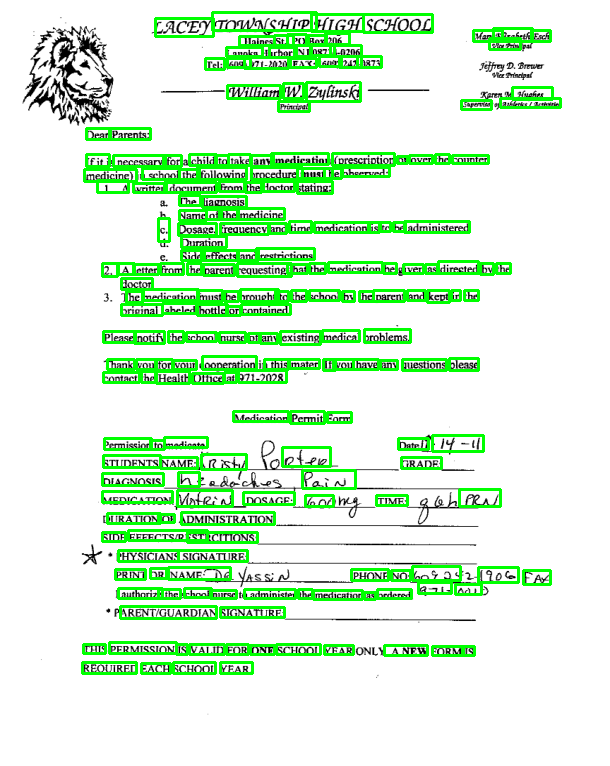 LACEY TOWNSHIP HIGH SCHOOL
Haines St. PO Box 206
Lanoka Harbor, NJ 08734-0206
Tel: (609) 971-2020 FAX: (609) 242-0873
William W. Zylinski
Principal
Mary Elizabeth Esch
Vice Principal
Jeffrey D. Brewer
Vice Principal
Karen M. Hughes
Supervisor of Athletics / Activities
Dear Parents:
If it is necessary for a child to take any medication (prescription or over the counter
medicine) in school the following procedure must be observed:
1. A written document from the doctor stating:
a. The diagnosis
b. Name of the medicine
c. Dosage, frequency and time medication is to be administered
d. Duration
e. Side effects and restrictions
2. A letter from the parent requesting that the medication be given as directed by the
doctor
3. The medication must be brought to the school by the parent and kept in the
original labeled bottle or contained
Please notify the school nurse of any existing medical problems.
Thank you for your cooperation in this mater. If you have any questions please
contact the Health Office at 971-2028
Medication Permit Form
Permission to medicate Date -14-11
STUDENTS NAME: Kristy Porter GRADE:
DIAGNOSIS headaches Pain
MEDICATION Motrin DOSAGE: 600 mg TIME: q6h PRN
DURATION OF ADMINISTRATION
SIDE EFFECTS/RESTRICITIONS
* PHYSICIANS SIGNATURE
PRINT DR NAME: Dr Yassin PHONE NO: 1906 FAX
I authorize the school nurse to administer the medication as ordered
* PARENT/GUARDIAN SIGNATURE
THIS PERMISSION IS VALID FOR ONE SCHOOL YEAR ONLY. A NEW FORM IS
REQUIRED EACH SCHOOL YEAR.